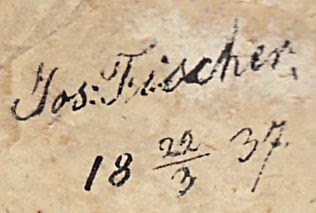 Jos: Fischer.
18 22/3 37.